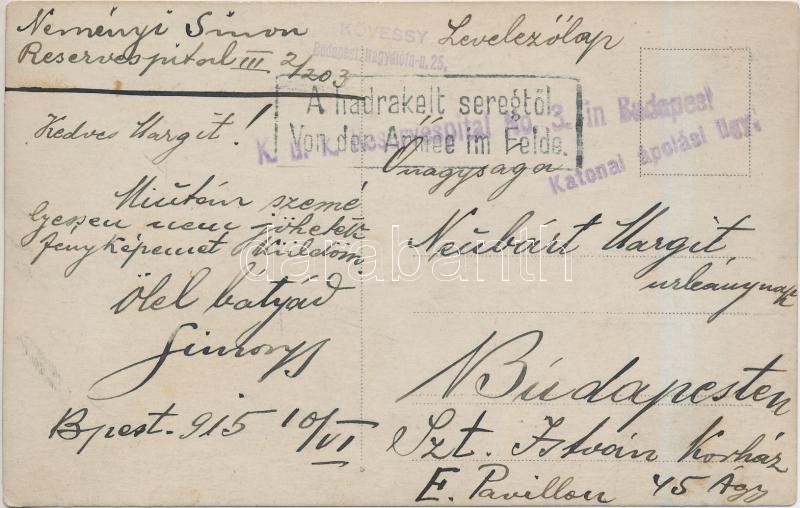 Neményi Simon
Reservespital III 2/203
KÖVESSY
Budapest, Nagydiófa-u. 25.
Levelezőlap
A hadrakelt seregtől.
Von der Armee im Felde.
K. u. K. Reservespital No. 3. in Budapest
Katonai ápolási ügy.
Kedves Margit!
Miután szemé
lyesen nem jöhetek
fényképemet küldöm.
Ölel bátyád
Simon
Bpest. 915 10/VI
Őnagysága
Neubárt Margit
urleánynak
Budapesten
Szt. István Korház
E. Pavillon 45 Ágy
darabanth